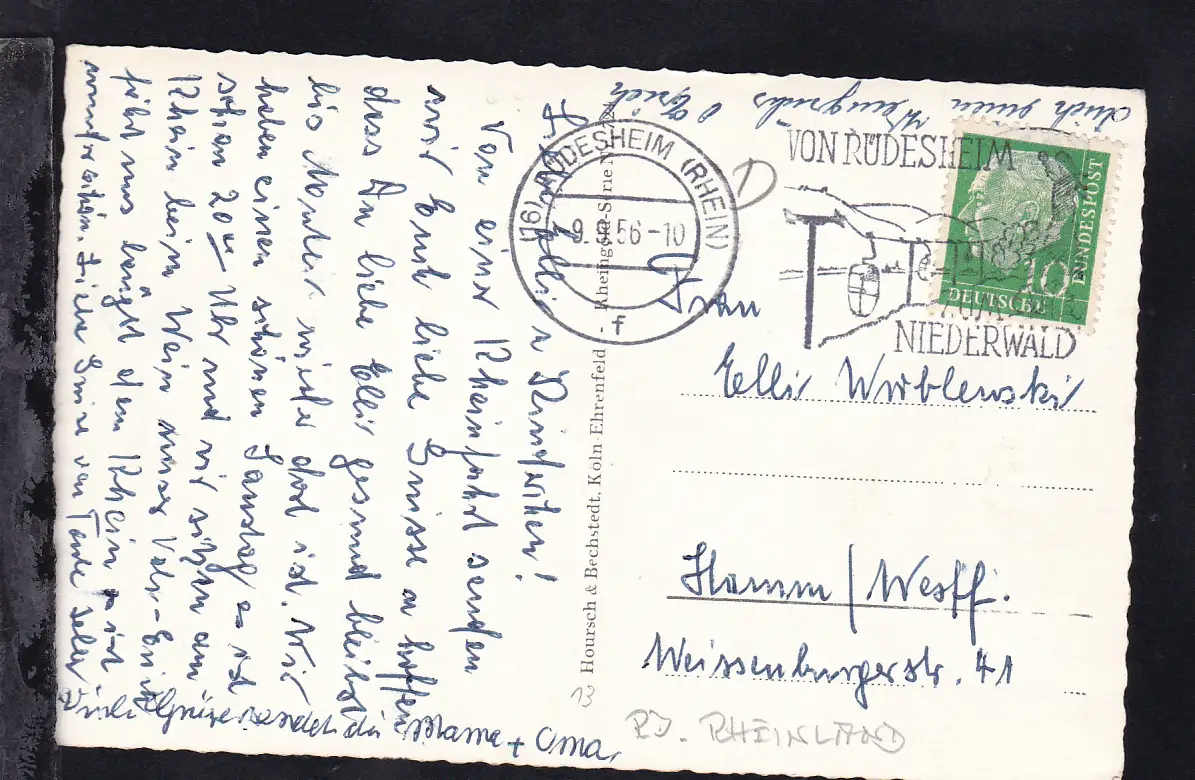 Kinderchen!
Von einer Rheinfahrt senden
wir Euch liebe Grüsse u. hoffen
dass Du liebe Elli gesund bleibst
bis Mutter wieder dort ist. Wir
haben einen schönen Samstag es ist
schon 20 Uhr und wir sitzen am
Rhein beim Wein unser
fährt uns längst dem Rhein es ist
wunderschön. Liebe Grüsse von Tante
Viele Grüsse sendet die Mama + Oma,
Auch einen
(16) RÜDESHEIM (RHEIN)
56-10
f
VON RÜDESHEIM
ZUM
NIEDERWALD
10
DEUTSCHE
BUNDESPOST
Hoursch & Bechstedt, Köln-Ehrenfeld - Rheingold-Serie
Frau
Elli Wroblewski
Hamm/Westf.
Weissenburgerstr. 41
RHEINLAND